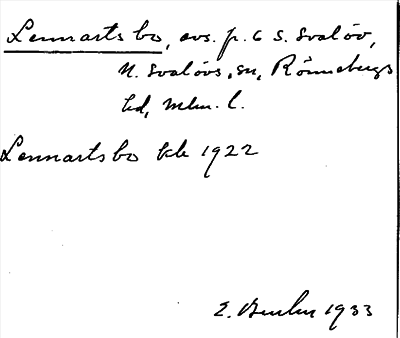 Lennartsbo, avs. p. C S. Svalöv,
N. Svalövs, sn, Rönnebergs
hd, Mlm. l.
Lennartsbo kb 1922
E. 1933